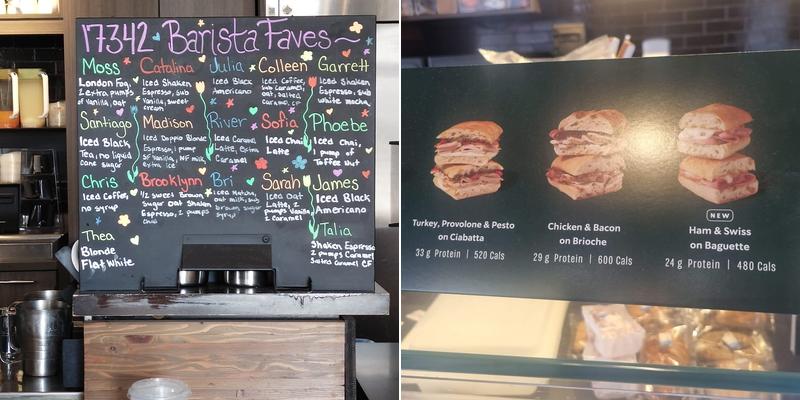 17342 Barista Faves~
Moss
London Fog,
2 extra pumps
of Vanilla, oat
Catalina
Iced Shaken
Espresso, sub
Vanilla, sweet
cream
Julia
Iced Black
Americano
Colleen
Iced Coffee,
sub Caramel,
oat, salted
caramel, CF
Garrett
Iced Shaken
Espresso, sub
white mocha,
Santiago
Iced Black
Tea, no liquid
cane sugar
Madison
Iced Doppio Blonde
Espresso, 1 pump
SF Vanilla, NF milk,
extra ice
River
Iced Caramel
Latte, extra
Caramel
Sofia
Iced Chai
Latte
Phoebe
Iced Chai,
1 pump of
Toffee Nut
Chris
Iced Coffee,
no syrup
Brooklynn
1/2 sweet Brown
sugar Oat Shaken
Espresso, 2 pumps
Bri
Iced Matcha,
oat milk, sub
brown sugar
syrup
Sarah
Iced Oat
Latte, 2
pumps Vanilla
2 Caramel
James
Iced Black
Americano
Thea
Blonde
Flat White
Talia
Shaken Espresso
2 pumps Caramel
Salted Caramel CF
Turkey, Provolone & Pesto
on Ciabatta
33 g Protein | 520 Cals
Chicken & Bacon
on Brioche
29 g Protein | 600 Cals
NEW
Ham & Swiss
on Baguette
24 g Protein | 480 Cals